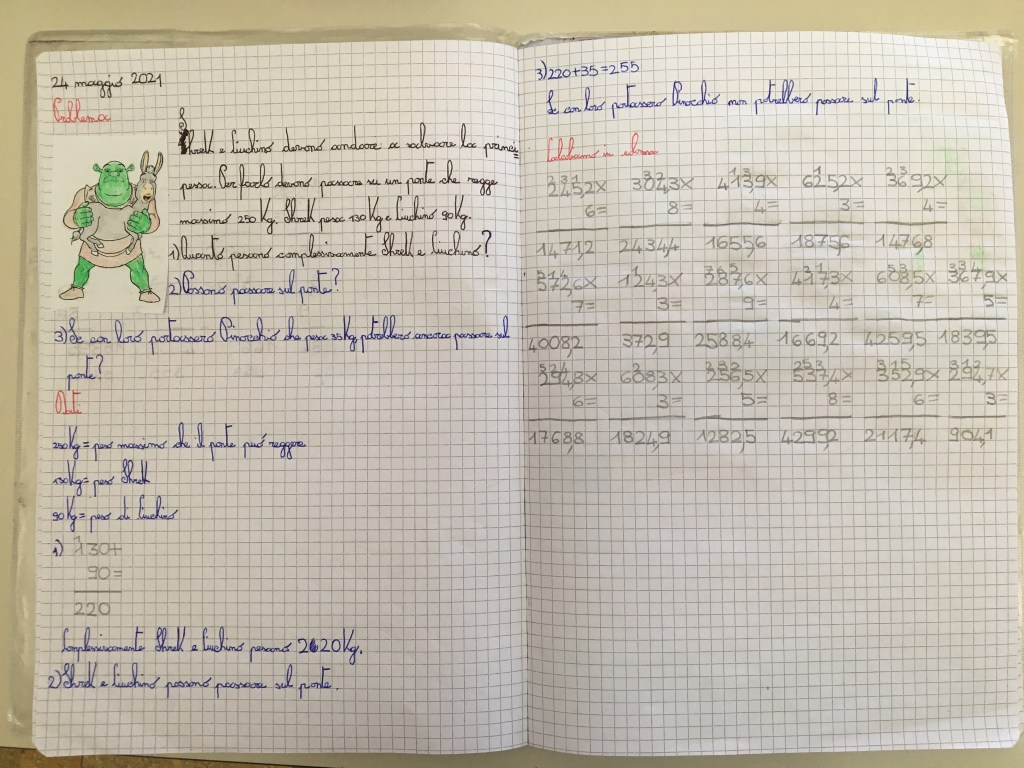 24 maggio 2021
Problema
Shrek e Ciuchino devono andare a salvare la princi=
pessa. Per farlo devono passare su un ponte che regge
massimo 250 Kg. Shrek pesa 130 Kg e Ciuchino 90 Kg.
1) Quanto pesano complessivamente Shrek e Ciuchino?
2) Possono passare sul ponte?
3) Se con loro portassero Pinocchio che pesa 35 Kg potrebbero ancora passare sul
ponte?
Dati
250 Kg = peso massimo che il ponte può reggere
130 Kg = peso Shrek
90 Kg = peso di Ciuchino
1) 130+
90=
220
Complessivamente Shrek e Ciuchino pesano 220 Kg.
2) Shrek e Ciuchino possono passare sul ponte.
3) 220+35=255
Se con loro portassero Pinocchio non potrebbero passare sul ponte.
Calcoliamo in
245,2x 304,3x 413,9x 625,2x 369,2x
6= 8= 4= 3= 4=
1471,2 2434,4 1655,6 1875,6 1476,8
572,6x 124,3x 287,6x 417,3x 608,5x 367,9x
7= 3= 9= 4= 7= 5=
4008,2 372,9 2588,4 1669,2 4259,5 1839,5
294,8x 608,3x 256,5x 537,4x 352,9x 294,7x
6= 3= 5= 8= 6= 3=
1768,8 1824,9 1282,5 4299,2 2117,4 904,1